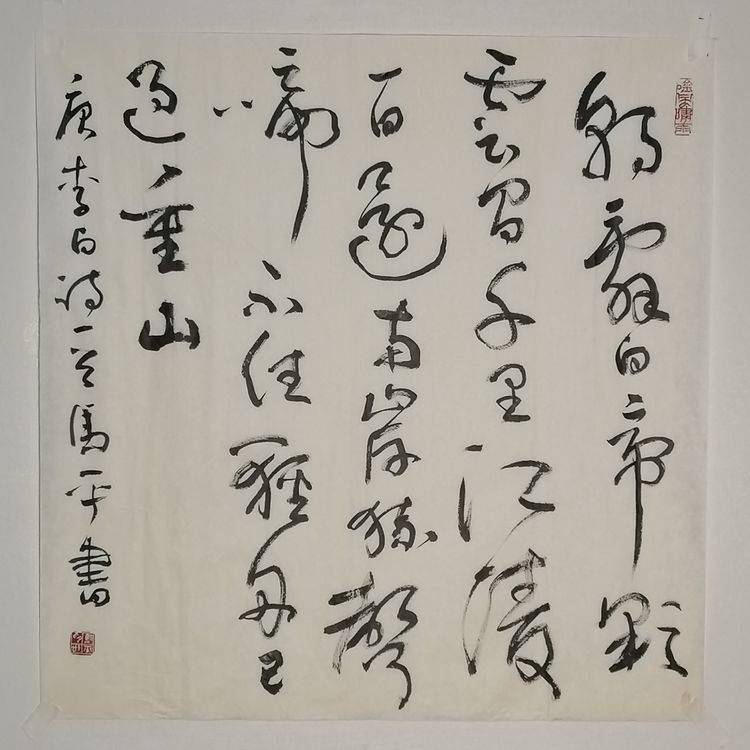 朝辭白帝彩
雲間千里江陵
一日還兩岸猿聲
啼不住輕舟已
過重山
唐李白诗一首馬平書